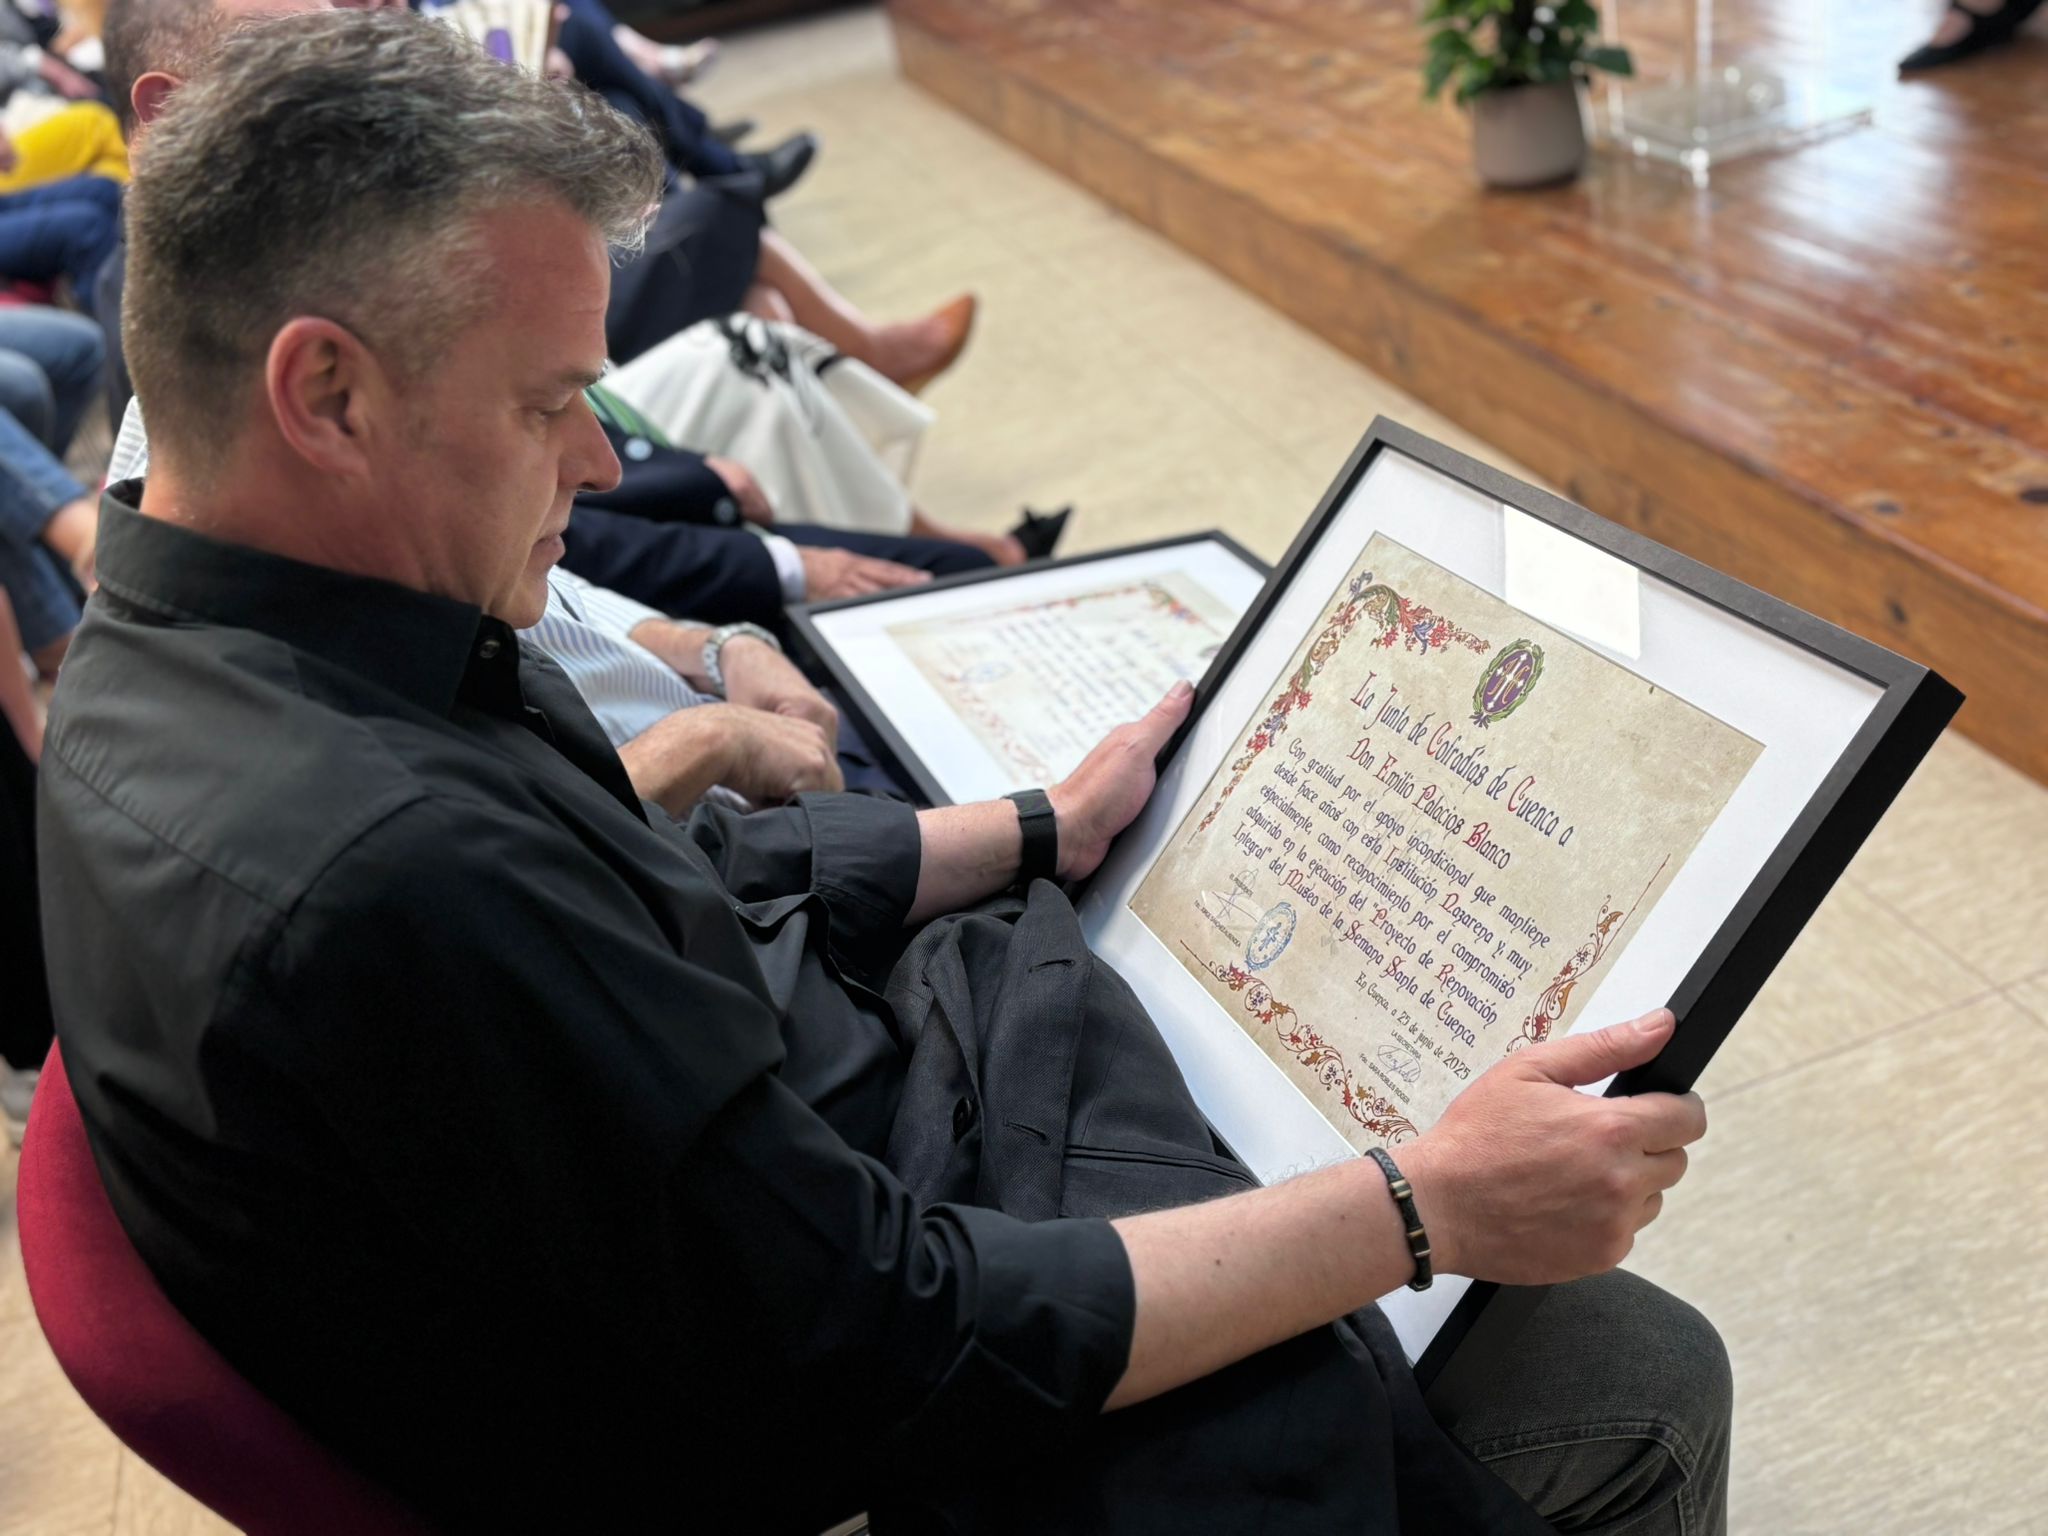 La Junta de Cofradías de Cuenca a
Don Emilio Palacios Blanco
Con gratitud por el apoyo incondicional que mantiene
desde hace años con esta Institución Nazarena y, muy
especialmente, como reconocimiento por el compromiso
adquirido en la ejecución del "Proyecto de Renovación
Integral" del Museo de la Semana Santa de Cuenca.
En Cuenca, a 25 de junio de 2025
EL PRESIDENTE
Fdo. JORGE SÁNCHEZ ALBENDEA
LA SECRETARIA
Fdo. SARA ROBLES ROGER